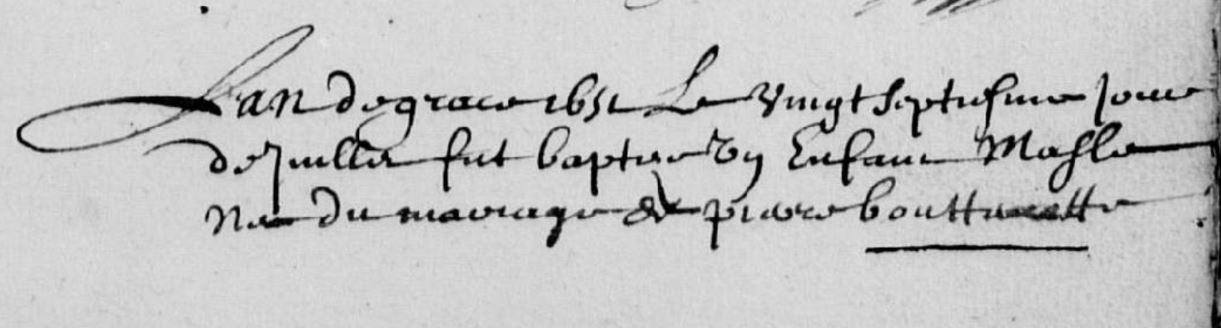 Lan de grace 1651 Le vingt septiesme Jour
de Juillet fut baptise un Enfant Masle
Ne du mariage de pierre